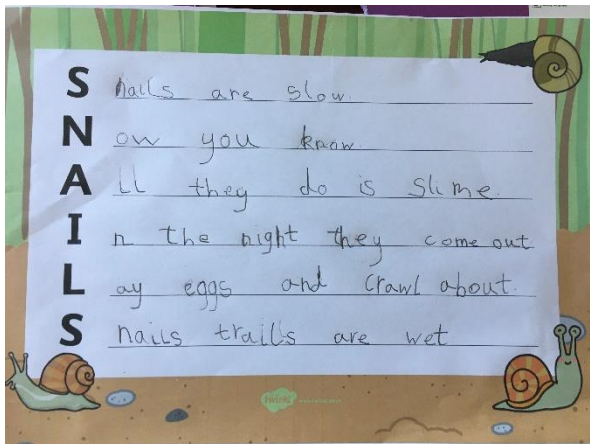 Snails are slow.
Now you know.
All they do is slime.
In the night they come out
Lay eggs and crawl about.
Snails trails are wet
twinkl